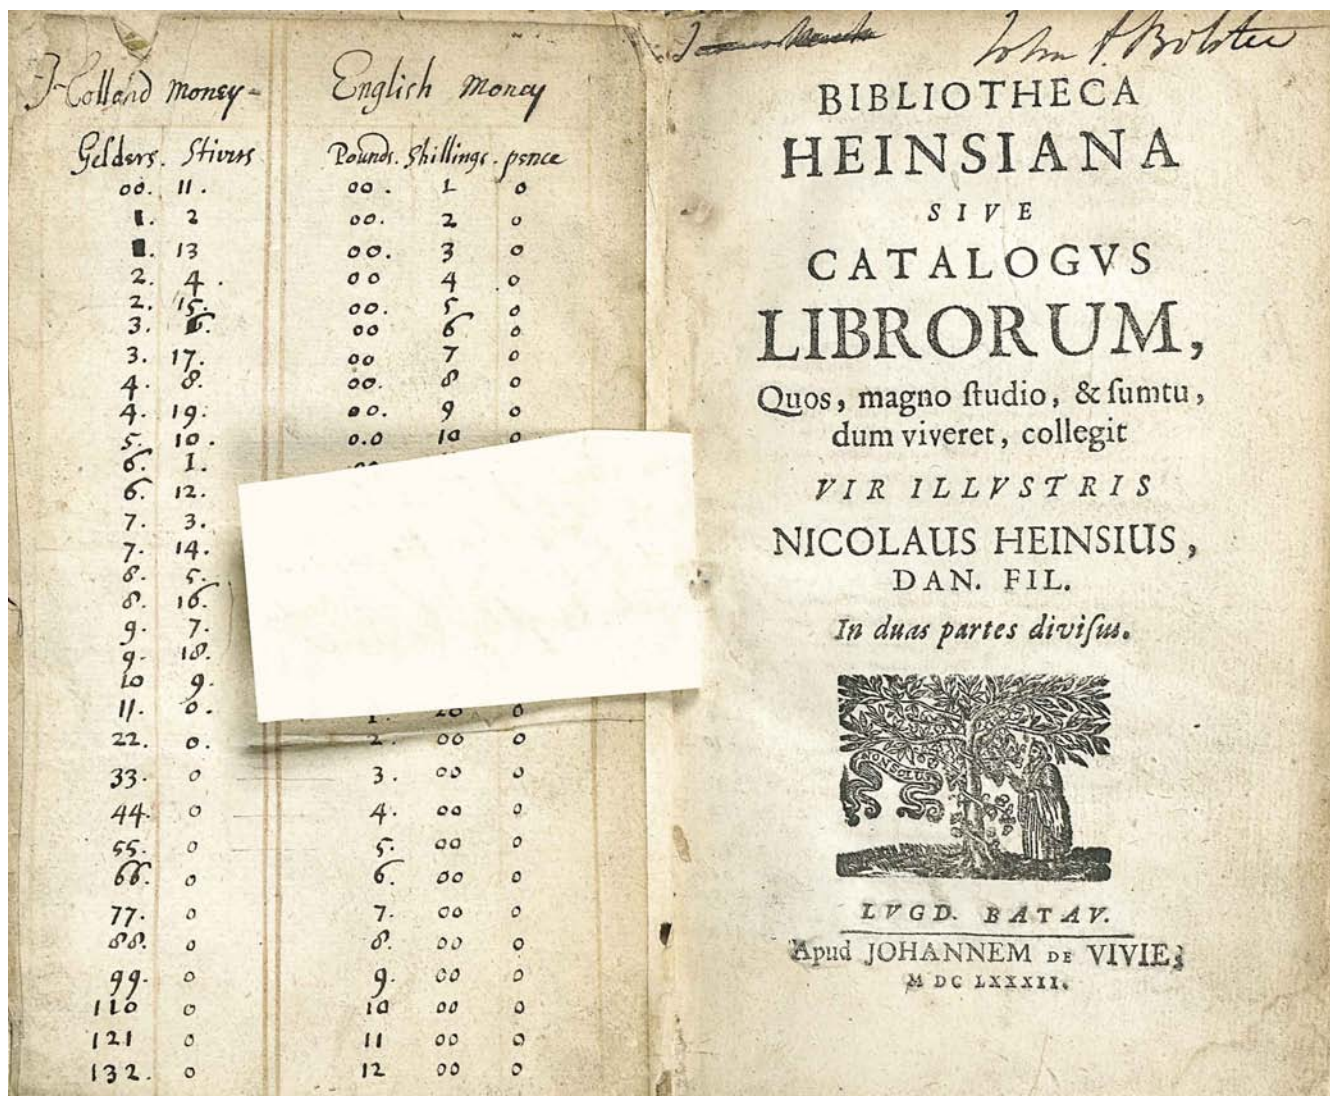 Holland Money English Money
Gelders. Stivers Pounds. Shillings. pence
00. 11. 00. 1 0
1. 2 00. 2 0
1. 13 00. 3 0
2. 4. 00 4 0
2. 15. 00. 5 0
3. 6. 00 6 0
3. 17. 00 7 0
4. 8. 00. 8 0
4. 19. 00. 9 0
5. 10. 0.0 10 0
6. 1. 00
6. 12.
7. 3.
7. 14.
8. 5.
8. 16.
9. 7.
9. 18.
10 9.
11. 0. 1. 20 0
22. 0. 2. 00 0
33. 0 3. 00 0
44. 0 4. 00 0
55. 0 5. 00 0
66. 0 6. 00 0
77. 0 7. 00 0
88. 0 8. 00 0
99. 0 9. 00 0
110 0 10 00 0
121 0 11 00 0
132. 0 12 00 0
John P. Bolster
BIBLIOTHECA
HEINSIANA
SIVE
CATALOGVS
LIBRORUM,
Quos, magno ſtudio, & ſumtu,
dum viveret, collegit
VIR ILLVSTRIS
NICOLAUS HEINSIUS,
DAN. FIL.
In duas partes diviſus.
NON SOLUS
LVGD. BATAV.
Apud JOHANNEM DE VIVIE,
M DC LXXXII.